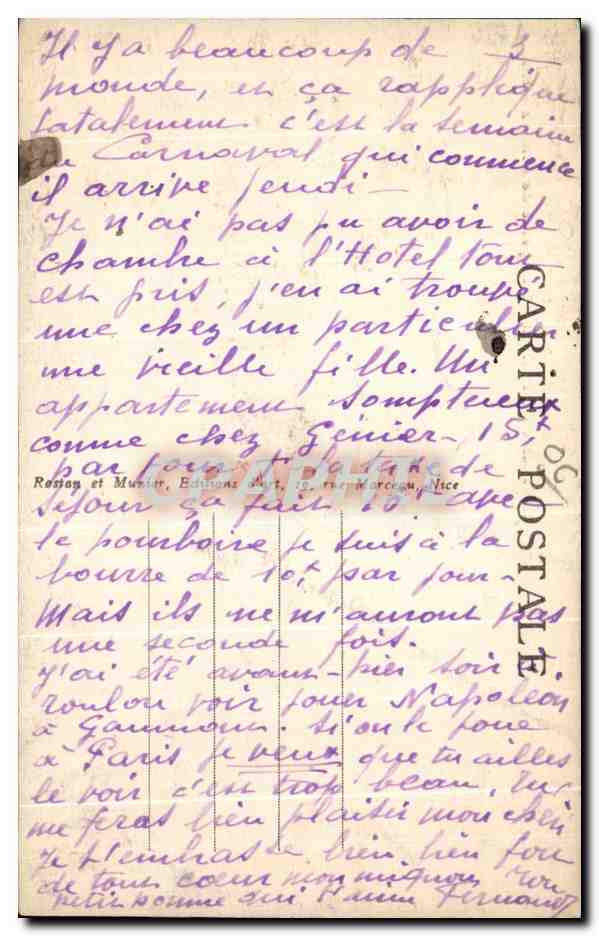 Il y a beaucoup de 3
monde, et ça rapplique
fatalement c'est la semaine
du Carnaval qui commence
il arrive jeudi —
Je n'ai pas pu avoir de
chambre à l'Hotel tout
est pris, j'en ai trouvé
une chez un particulier
une vieille fille. Un
appartement somptueux
comme chez Génier - 15f
par jour et la taxe de
Rostan et Munier, Editions d'art, 19, rue Marceau, Nice
séjour ça fait 16f avec
le pourboire je suis à la
bourre de 10f par jour -
Mais ils ne m'auront pas
une seconde fois.
J'ai été avant-hier soir à
Toulon voir jouer Napoléon
à Gaumont. Si on le joue
à Paris je veux que tu ailles
le voir c'est trop beau, tu
me feras bien plaisir mon chéri
Je t'embrasse bien, bien fort
de tout cœur mon mignon Ton
petit homme qui t'aime Fernand
CARTE POSTALE
CPAPHIL